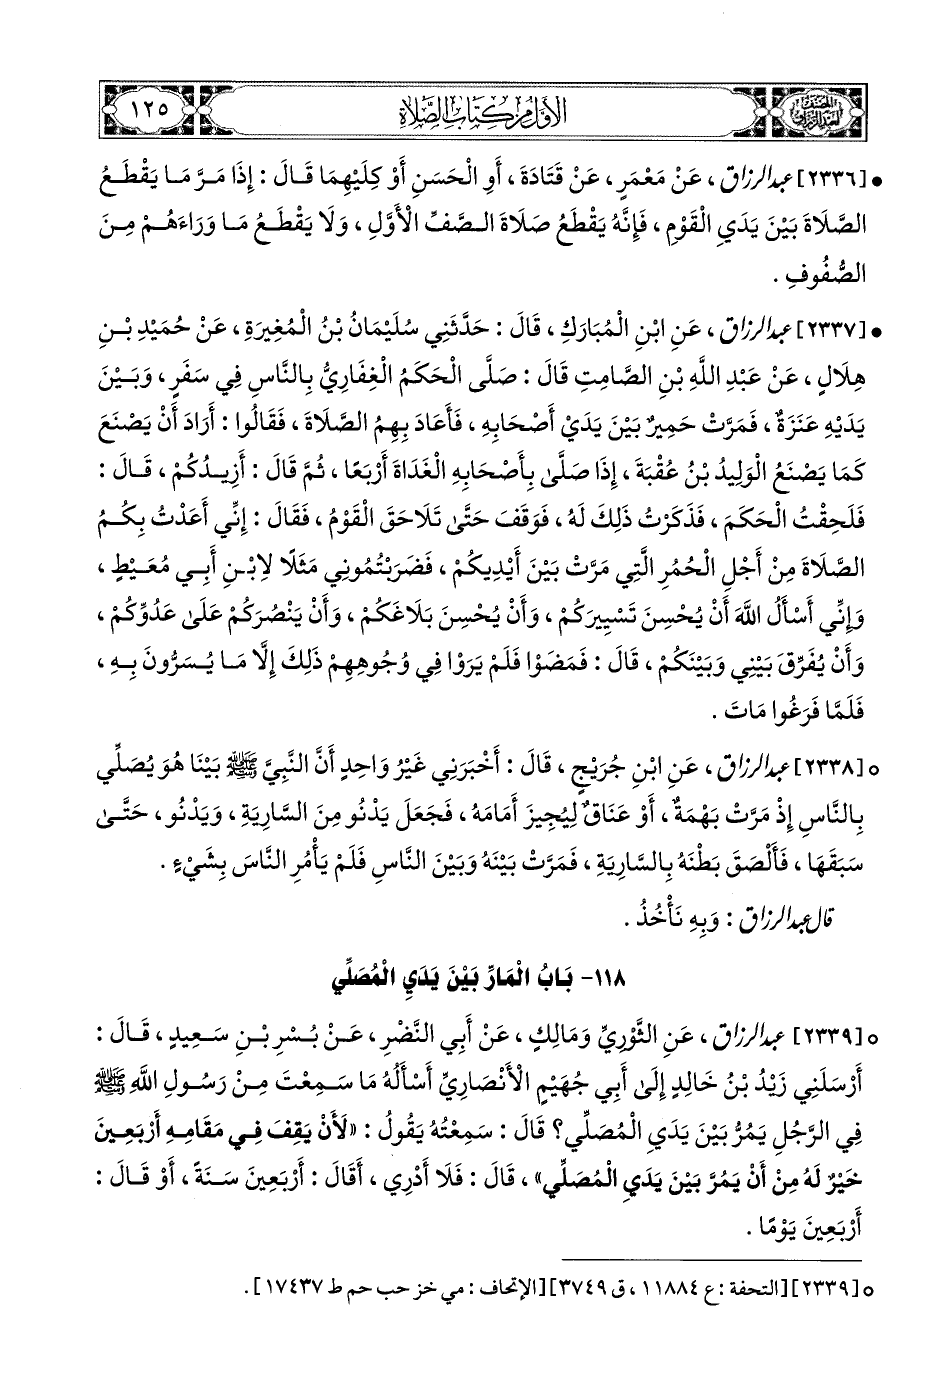 المصنف لعبد الرزاق
الأول من كتاب الصلاة
١٢٥
• [٢٣٣٦] عبد الرزاق، عَنْ مَعْمَرٍ، عَنْ قَتَادَةَ، أَوِ الْحَسَنِ أَوْ كِلَيْهِمَا قَالَ: إِذَا مَرَّ مَا يَقْطَعُ
الصَّلَاةَ بَيْنَ يَدَيِ الْقَوْمِ، فَإِنَّهُ يَقْطَعُ صَلَاةَ الصَّفِّ الْأَوَّلِ، وَلَا يَقْطَعُ مَا وَرَاءَهُمْ مِنَ
الصُّفُوفِ.
• [٢٣٣٧] عبد الرزاق، عَنِ ابْنِ الْمُبَارَكِ، قَالَ: حَدَّثَنِي سُلَيْمَانُ بْنُ الْمُغِيرَةِ، عَنْ حُمَيْدِ بْنِ
هِلَالٍ، عَنْ عَبْدِ اللَّهِ بْنِ الصَّامِتِ قَالَ: صَلَّى الْحَكَمُ الْغِفَارِيُّ بِالنَّاسِ فِي سَفَرٍ، وَبَيْنَ
يَدَيْهِ عَنَزَةٌ، فَمَرَّتْ حَمِيرٌ بَيْنَ يَدَيْ أَصْحَابِهِ، فَأَعَادَ بِهِمُ الصَّلَاةَ، فَقَالُوا: أَرَادَ أَنْ يَصْنَعَ
كَمَا يَصْنَعُ الْوَلِيدُ بْنُ عُقْبَةَ، إِذَا صَلَّى بِأَصْحَابِهِ الْغَدَاةَ أَرْبَعًا، ثُمَّ قَالَ: أَزِيدُكُمْ، قَالَ:
فَلَحِقْتُ الْحَكَمَ، فَذَكَرْتُ ذَلِكَ لَهُ، فَوَقَفَ حَتَّى تَلَاحَقَ الْقَوْمُ، فَقَالَ: إِنِّي أَعَدْتُ بِكُمُ
الصَّلَاةَ مِنْ أَجْلِ الْحُمُرِ الَّتِي مَرَّتْ بَيْنَ أَيْدِيكُمْ، فَضَرَبْتُمُونِي مَثَلًا لِابْنِ أَبِي مُعَيْطٍ،
وَإِنِّي أَسْأَلُ اللَّهَ أَنْ يُحْسِنَ تَسْيِيرَكُمْ، وَأَنْ يُحْسِنَ بَلَاغَكُمْ، وَأَنْ يَنْصُرَكُمْ عَلَى عَدُوِّكُمْ،
وَأَنْ يُفَرِّقَ بَيْنِي وَبَيْنَكُمْ، قَالَ: فَمَضَوْا فَلَمْ يَرَوْا فِي وُجُوهِهِمْ ذَلِكَ إِلَّا مَا يُسَرُّونَ بِهِ،
فَلَمَّا فَرَغُوا مَاتَ.
○ [٢٣٣٨] عبد الرزاق، عَنِ ابْنِ جُرَيْجٍ، قَالَ: أَخْبَرَنِي غَيْرُ وَاحِدٍ أَنَّ النَّبِيَّ ﷺ بَيْنَا هُوَ يُصَلِّي
بِالنَّاسِ إِذْ مَرَّتْ بَهْمَةٌ، أَوْ عَنَاقٌ لِيُجِيزَ أَمَامَهُ، فَجَعَلَ يَدْنُو مِنَ السَّارِيَةِ، وَيَدْنُو، حَتَّى
سَبَقَهَا، فَأَلْصَقَ بَطْنَهُ بِالسَّارِيَةِ، فَمَرَّتْ بَيْنَهُ وَبَيْنَ النَّاسِ فَلَمْ يَأْمُرِ النَّاسَ بِشَيْءٍ.
قال عبد الرزاق: وَبِهِ نَأْخُذُ.
١١٨- بَابُ الْمَارِّ بَيْنَ يَدَيِ الْمُصَلِّي
○ [٢٣٣٩] عبد الرزاق، عَنِ الثَّوْرِيِّ وَمَالِكٍ، عَنْ أَبِي النَّضْرِ، عَنْ بُسْرِ بْنِ سَعِيدٍ، قَالَ:
أَرْسَلَنِي زَيْدُ بْنُ خَالِدٍ إِلَى أَبِي جُهَيْمٍ الْأَنْصَارِيِّ أَسْأَلُهُ مَا سَمِعْتَ مِنْ رَسُولِ اللَّهِ ﷺ
فِي الرَّجُلِ يَمُرُّ بَيْنَ يَدَيِ الْمُصَلِّي؟ قَالَ: سَمِعْتُهُ يَقُولُ: «لَأَنْ يَقِفَ فِي مَقَامِهِ أَرْبَعِينَ
خَيْرٌ لَهُ مِنْ أَنْ يَمُرَّ بَيْنَ يَدَيِ الْمُصَلِّي»، قَالَ: فَلَا أَدْرِي، أَقَالَ: أَرْبَعِينَ سَنَةً، أَوْ قَالَ:
أَرْبَعِينَ يَوْمًا.
○ [٢٣٣٩] [التحفة: ع ١١٨٨٤، ق ٣٧٤٩] [الإتحاف: مي خز حب حم ط ١٧٤٣٧].